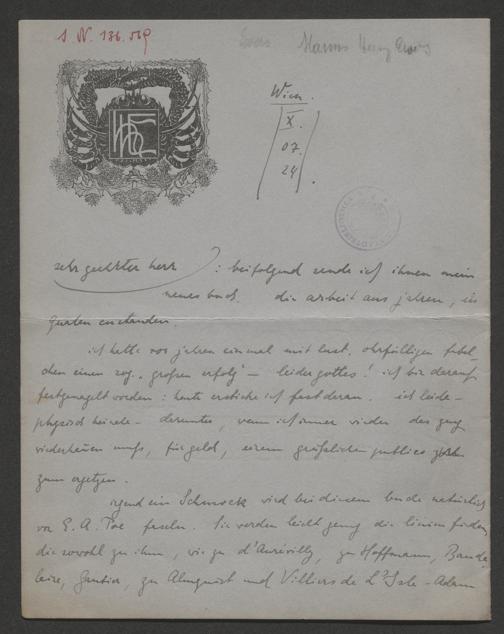 I. N. 136.519
Ewers Hanns Heinz Ewers
HHE
Wien.
X.
07.
24.
sehr geehrter herr : beifolgend sende ich ihnen mein
neues buch. die arbeit aus jahren, in
entstanden.
ich hatte vor jahren einmal mit fabel-
chen einen sog. „großen erfolg" — leider gottes! ich bin darauf
festgenagelt worden : heute ersticke ich fast daran. ich leide -
physisch beinahe - darunter, wenn ich immer wieder das zeug
wiederkäuen muss, für geld, einem grässlichen publico
zum ergetzen.
irgend ein Schmock wird bei diesem buche natürlich
von E. A. Poe faseln. Sie werden leicht genug die linien finden
die sowohl zu ihm, wie zu d'Aurévilly, zu Hoffmann, Baude-
laire, Gautier, zu Almquist und Villiers de L'Isle-Adam